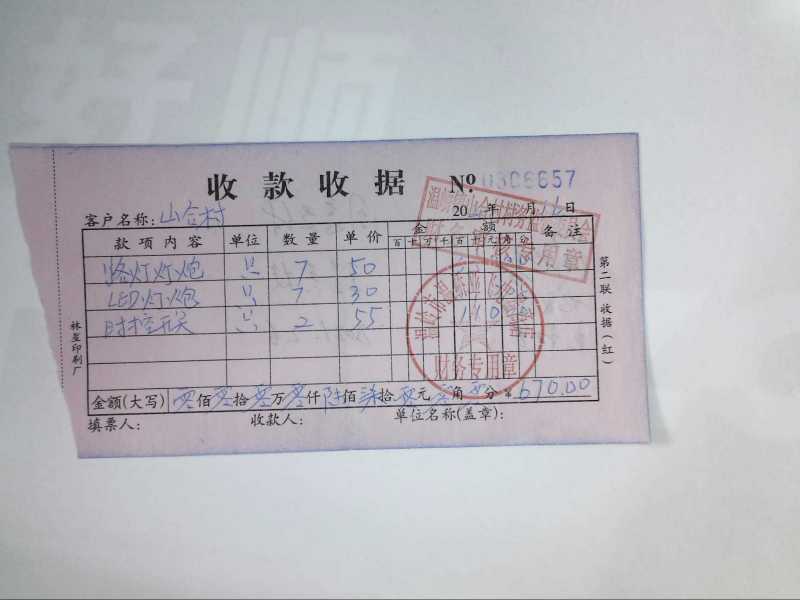 收款收据 №. 0306657
客户名称:山合村
20 年 月 16 日
款项内容 单位 数量 单价 金额 备注
百十万千百十元角分
路灯灯炮 只 7 50
LED灯炮 只 7 30
时控开关 只 2 55 110
金额(大写) 零佰零拾零万零仟陆佰柒拾零元零角零分 ¥ 670.00
填票人: 收款人: 单位名称(盖章):
第二联 收据(红)
林垦印刷厂
财务专用章
专用章
好顺